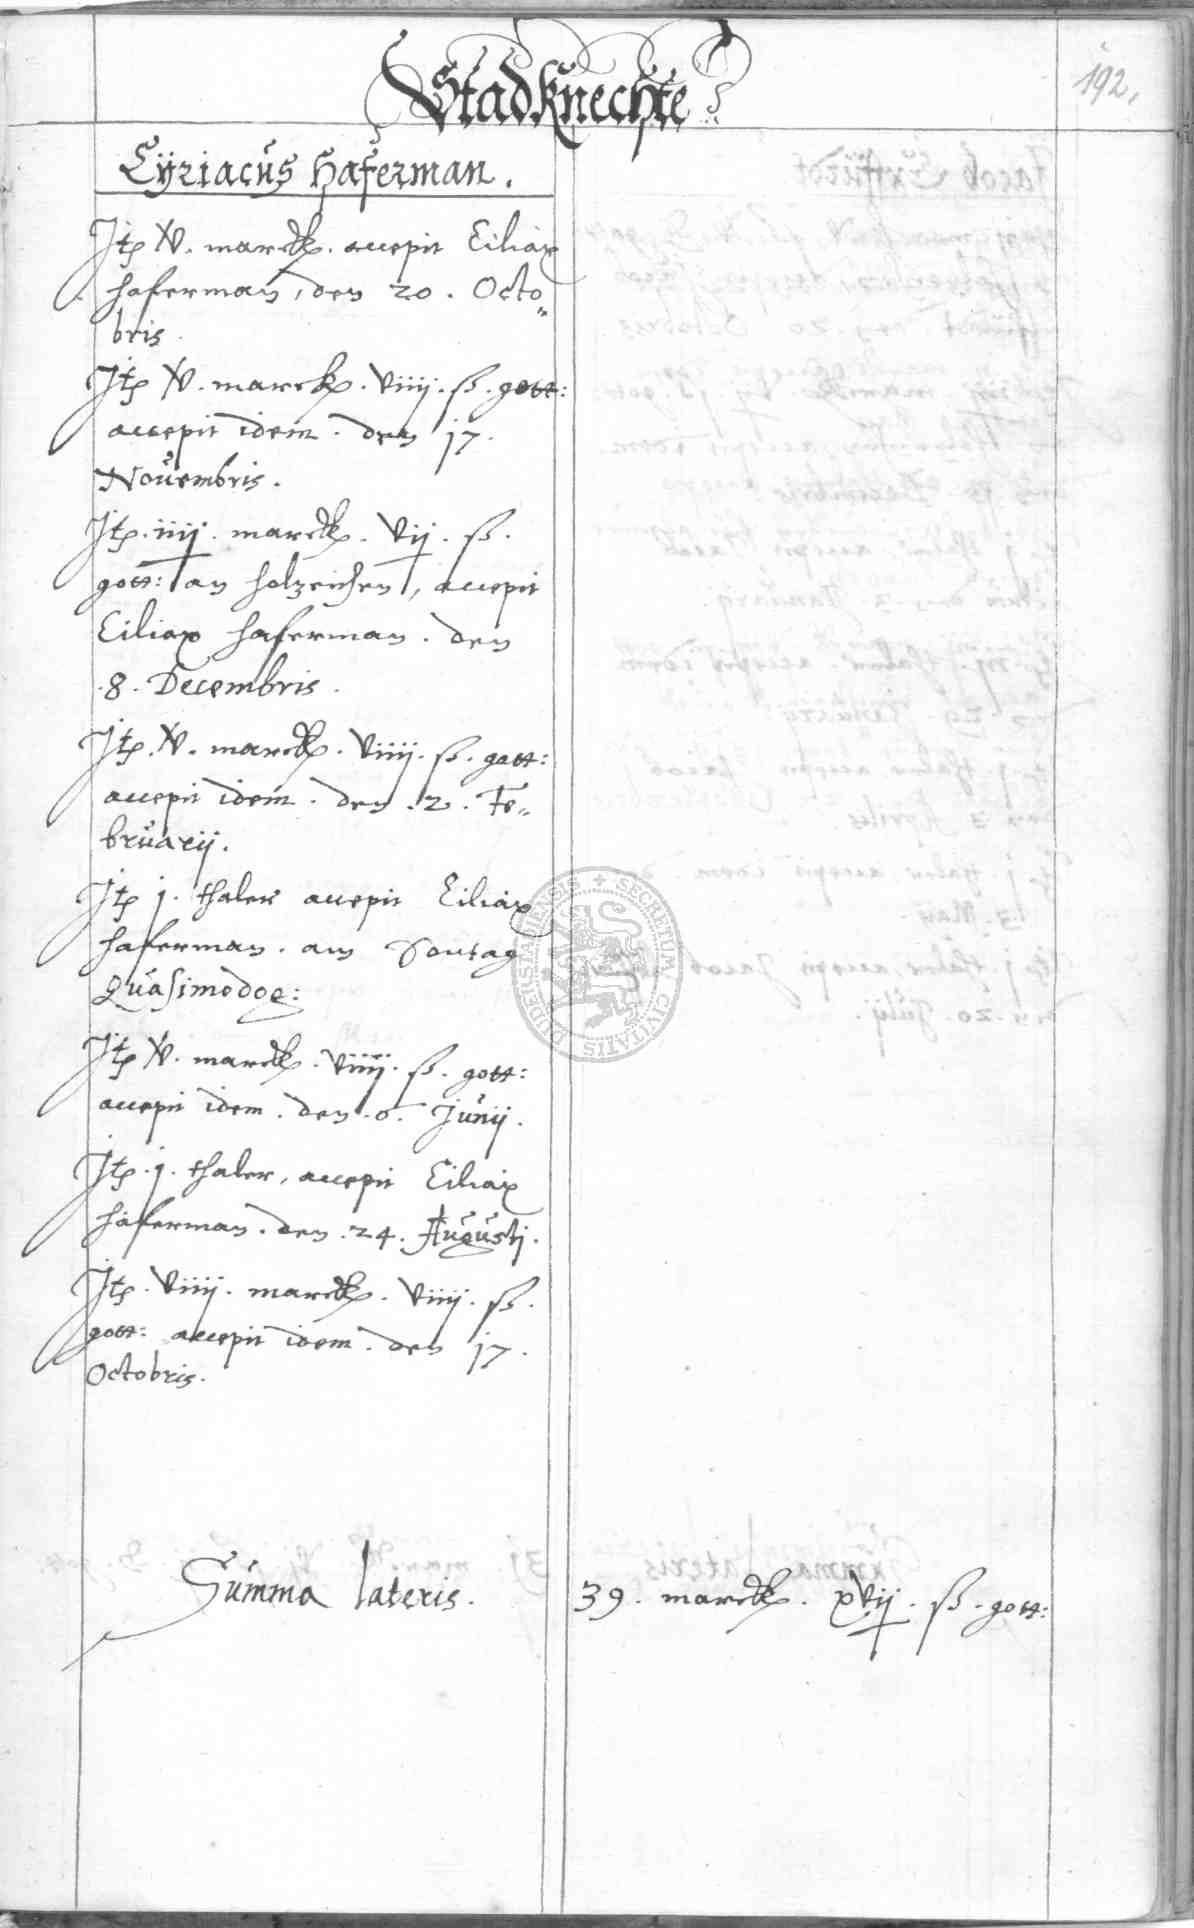 192.
Stadknechte
Cÿriacus Haferman.
Itp V. marck. accepit Ciliax
haferman, den 20. Octo„
bris.
Itp V. marck. viiij. ß. gott:
accepit idem. den 17.
Novembris.
Itp. iiij. marck. vij. ß.
gott: an holzeichen, accepit
Ciliax haferman. den
.8. Decembris.
Itp. V. marck. viiij. ß. gott:
accepit idem. den .2. Fe„
bruarij.
Itp j. thaler accepit Ciliax
haferman. am Sontag
Quasimodog:
Itp V. marck. viiij. ß. gott:
accepit idem. den .6. Junij.
Itp. j. thaler, accepit Ciliax
haferman. den .24. Augustj.
Itp. viiij. marck. viiij. ß.
gott: accepit idem. den 17.
Octobris.
Summa lateris. 39. marck. xvij. ß. gott:
SECRETUM CIVITATIS DUDERSTADIENSIS